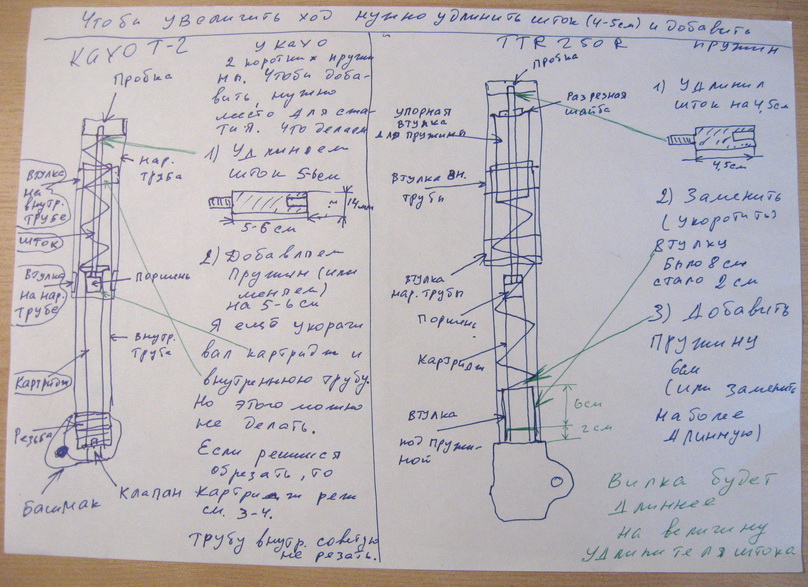 Чтобы увеличить ход нужно удлинить шток (4-5см) и добавить
пружин
КАХО Т-2
Пробка
Втулка
на
внутр.
трубе
нар.
труба
шток
Втулка
на нар.
трубе
Поршень
внутр.
труба
Картридж
Резьба
Башмак
Клапан
У КАХО
2 коротких пружи
ны. Чтобы доба-
вить, нужно
место для сжа-
тия. Что делаем
1) Удлиняем
шток 5-6см
14мм
5-6см
2) Добавляем
Пружин (или
меняем)
на 5-6см
Я ещё укорачи
вал картридж и
внутреннюю трубу.
Но этого можно
не делать.
Если решишся
обрезать, то
картридж реж
см. 3-4.
Трубу внутр. советую
не резать.
TTR 250R
Пробка
упорная
втулка
для пружины
Разрезная
шайба
Втулка вн.
трубы
Втулка
нар. трубы
Поршень
Картридж
Втулка
под пружи-
ной
6см
2см
1) Удлинил
шток на 4,5см
4,5см
2) Заменить
(укоротить)
втулку
было 8см
стало 2см
3) Добавить
Пружину
6см
(или заменить
на более
длинную)
Вилка будет
длиннее
на величину
удлинителя штока